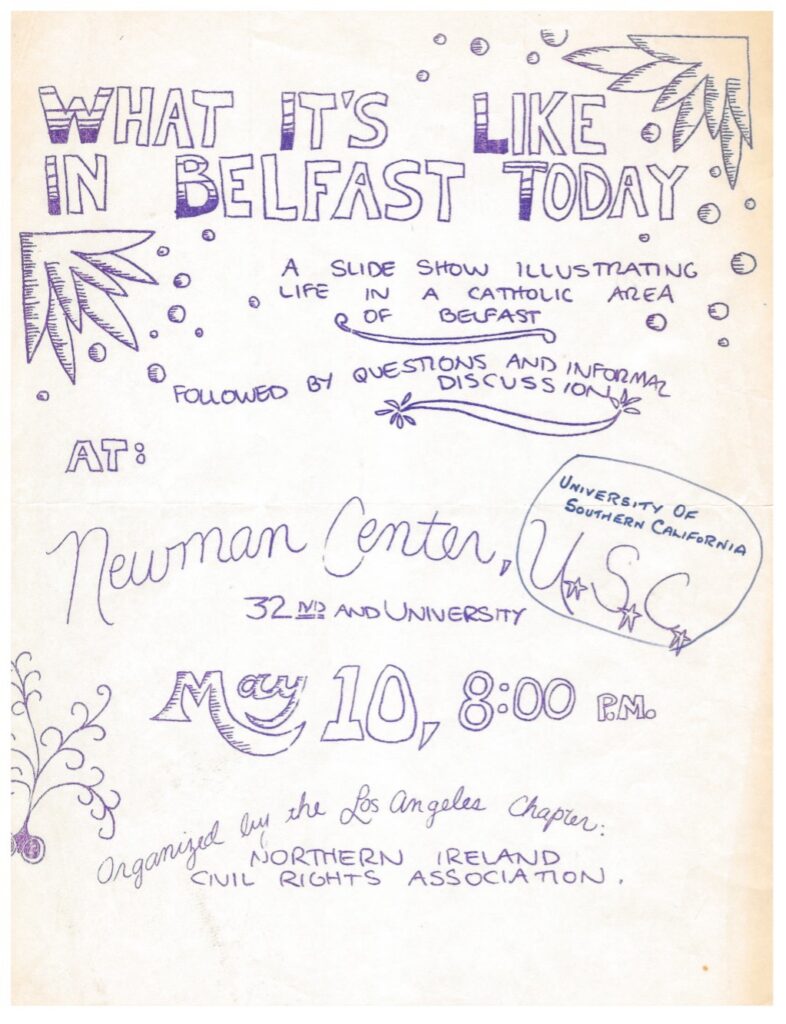 WHAT IT'S LIKE
IN BELFAST TODAY
A SLIDE SHOW ILLUSTRATING
LIFE IN A CATHOLIC AREA
OF BELFAST
FOLLOWED BY QUESTIONS AND INFORMAL
DISCUSSION
AT:
Newman Center, U.S.C.
UNIVERSITY OF
SOUTHERN CALIFORNIA
32ND AND UNIVERSITY
May 10, 8:00 P.M.
Organized by the Los Angeles Chapter:
NORTHERN IRELAND
CIVIL RIGHTS ASSOCIATION.